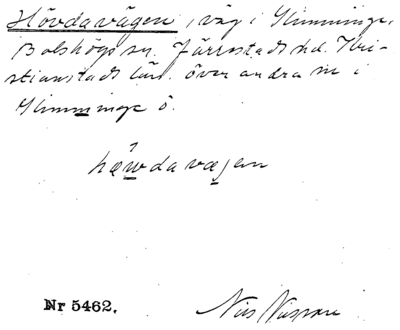 Hövdavägen, väg i Glimminge,
Bolshögs sn. Järrestads hd. Kri-
stianstads län. över andra m i
Glimminge ô.
hævdavægen
Nr 5462.
Nils